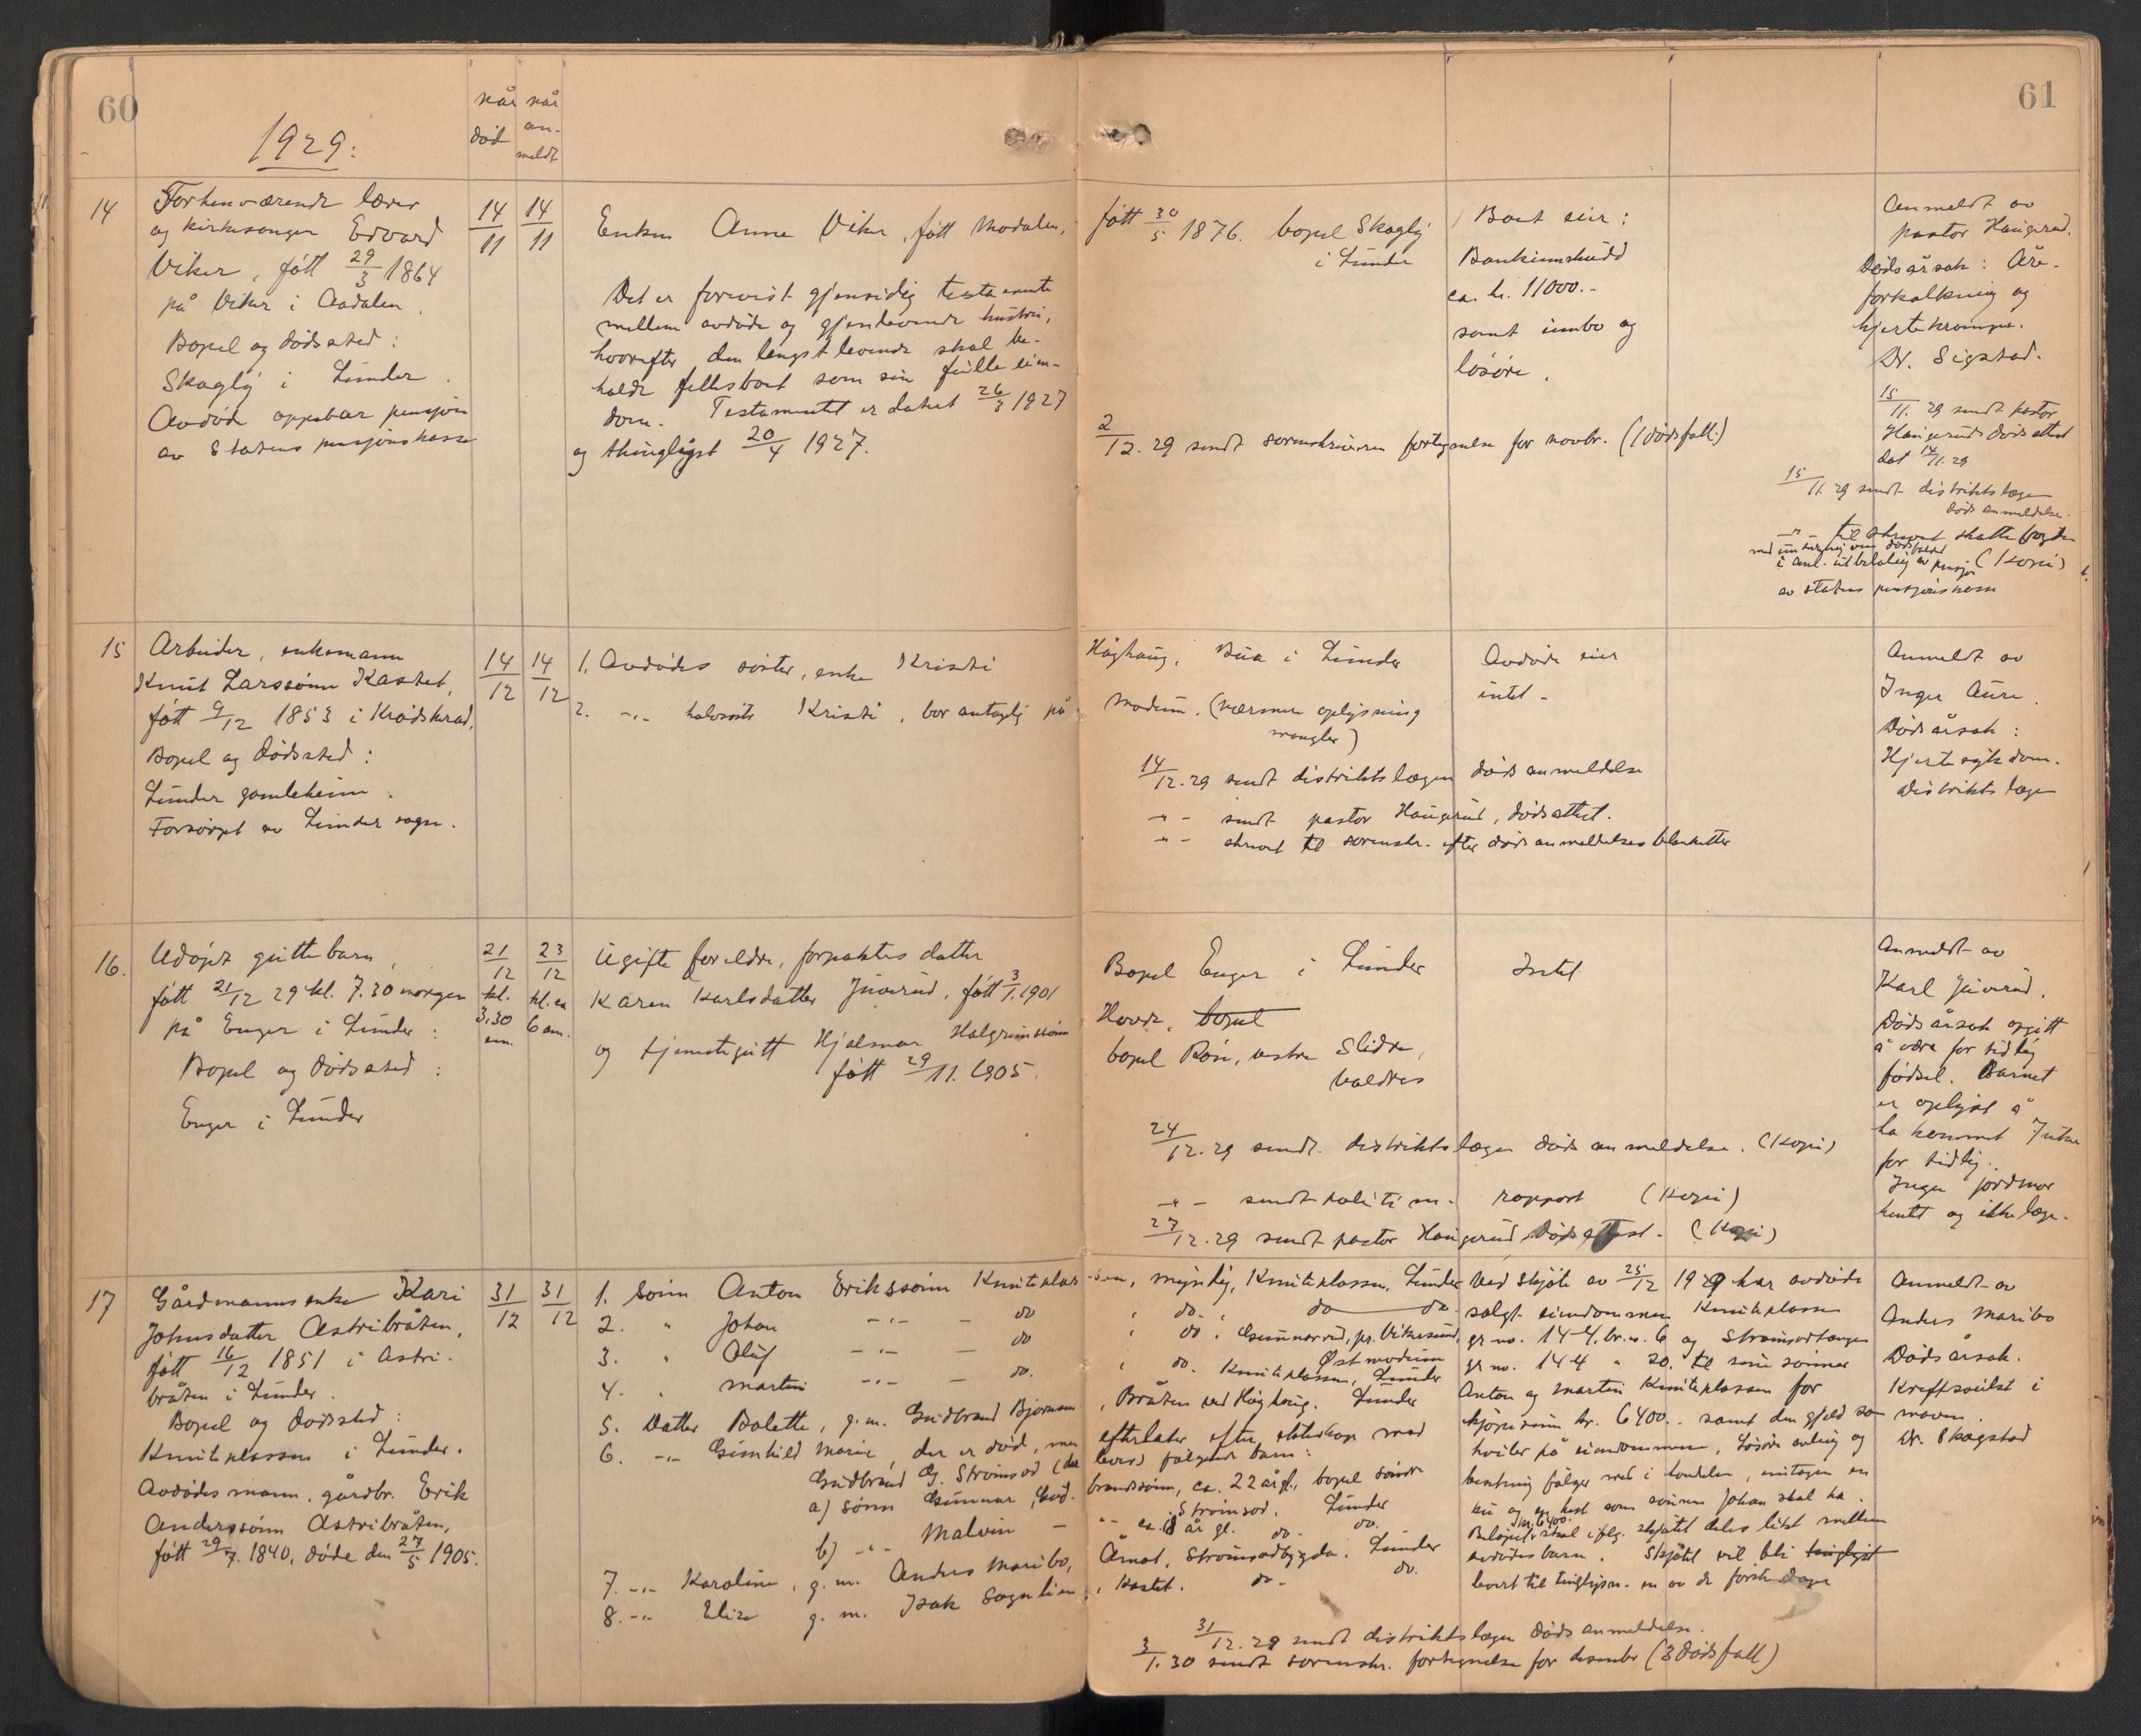 60
1929:
når død
når an-meldt
61
14
Forhenværende lærer
og kirkesanger Edvard
Viker, født 29/3 1864
på Viker i Aadalen.
Bopel og dødssted:
Skagly i Lunder.
Avdøde oppebar pensjon
av Statens pensjonskasse
14/11
14/11
Enken Anne Viker, født Modalen,
født 30/5 1876. bopel Skagly
i Lunder
Det er forevist gjensidig testamente
mellem avdøde og gjenlevende hustru,
hvorefter den lengst levende skal be-
holde fellesboet som sin fulle eien-
dom. Testamentet er datert 26/3 1927
og thinglyst 20/4 1927.
Boet eier:
Bankinnskudd
ca. kr. 11000.-
samt innbo og
løsøre.
2/12. 29 sendt sorenskriveren fortegnelse for novbr. (1 dødsfall.)
Anmeldt av
pastor Haugerud.
Dødsårsak: Åre-
forkalkning og
hjertekrampe.
Dr. Sigstad.
15/11. 29 sendt pastor
Haugerud dødsattest
dat 14/11. 29
15/11. 29 sendt distriktslægen
dødsanmeldelse.
-"- til skrevet skattefogden
med underretning om dødsfallet
i anl. utbetaling av pensjon (Kopi)
av statens pensjonskasse
15
Arbeider, enkemann
Knut Larssønn Kastet,
født 9/12 1853 i Krødsherad,
Bopel og dødssted:
Lunder gamleheim.
Forsørget av Lunder sogn.
14/12
14/12
1. Avdødes søster, enke Kristi
Høghaug, Bua i Lunder
2. -"- halvsøster Kristi, bor antagelig på
Modum. (nærmere oplysning
mangler)
Avdøde eier
intet -
14/12. 29 sendt distriktslægen dødsanmeldelse
-"- sendt pastor Haugerud, dødsattest.
-"- skrevet til sorenskr. efter dødsanmeldelsesblanketter
Anmeldt av
Inger Aure.
Dødsårsak:
Hjertesykdom.
Distriktslægen
16.
Udøpt guttebarn,
født 21/12 29 kl. 7.30 morgen
på Enger i Lunder:
Bopel og dødssted:
Enger i Lunder
21/12 kl. 3.30 em.
23/12 kl. ca 6 em.
Ugifte foreldre, forpakters datter
Karen Karlsdatter Juverud, født 3/1. 1901
og tjenestegutt Hjalmar Halgrimssønn
født 29/11. 1905.
Bopel Enger i Lunder
Hovde, bopel
bopel Røn, vestre Slidre,
Valdres
Intet
24/12. 29 sendt. distriktslægen dødsanmeldelse. (Kopi)
-"- sendt politim. rapport (Kopi)
27/12. 29 sendt pastor Haugerud, dødsattest. (Kopi)
Anmeldt av
Karl Juverud.
Dødsårsak opgitt
å være for tidlig
fødsel. Barnet
er oplyst å
ha kommet 7 uker
for tidlig.
Ingen jordmor
hentet og ikke læge.
17
Gårdmannsenke Kari
Johnsdatter Astribråten,
født 16/12 1851 i Astri-
bråten i Lunder.
Bopel og dødssted:
Knuteplassen i Lunder.
Avdødes mann, gårdbr. Erik
Anderssønn Astribråten,
født 29/7. 1840, døde den 27/5 1905.
31/12
31/12
1. Sønn Anton Erikssønn Knuteplas-sen, myndig, Knuteplassen, Lunder
2. " Johan -"- - do " do. " do do.
3. " Oluf -"- - do " do. Gunnarrud, pr. Vikersund, Øst modum
4. " Martin -"- - do. " do. Knuteplassen, Lunder
5. Datter Bolette, g.m. Gudbrand Bjørnson, Bråten ved Høghaug. Lunder
6. -"- Gunhild Marie, der er død, men efterlater efter ekteskap med
Gudbrand G. Strømsod (der lever) følgende barn:
a) sønn Gunnar Gud-brandssønn, ca. 22 år gl., bopel søndre
Strømsod. Lunder
b) -"- Malvin - -"- ca. 18 år gl. do. do.
7. -"- Karoline, g.m. Anders Maribo, Åmot, Strømsodbygda. Lunder
8. -"- Elise g.m. Isak Sognlien, Kastet. do. do.
Ved skjøte av 25/12 1929 har avdøde
solgt eiendommen Knuteplassen
gr. no. 144, br. no. 6 og Strømsodtangen
gr. no. 144 " 20. til sine sønner
Anton og Martin Knuteplassen for
kjøpesum kr. 6400.- samt den gjeld som
hviler på eiendommene, løsøre avling og
besetning følger med i handelen, unntagen en
ku og en hest som sønnen Johan skal ha.
Beløpet kr. 6400.- skal ifølg. skjøtet deles likt mellem
avdødes barn. Skjøtet vil bli tinglyst
levert til tinglysn. en av de første dager
31/12. 29 sendt distriktslægen dødsanmeldelse.
3/1. 30 sendt sorenskr. fortegnelse for desember (3 dødsfall)
Anmeldt av
Anders Maribo
Dødsårsak.
Kreftsvulst i
maven.
Dr. Skagstad